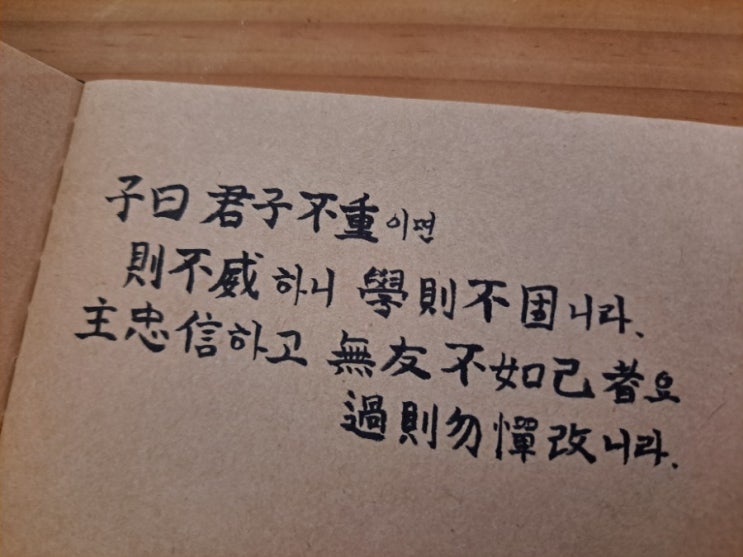 子曰 君子不重이면
則不威하니 學則不固니라.
主忠信하고 無友不如己者요
過則勿憚改니라.